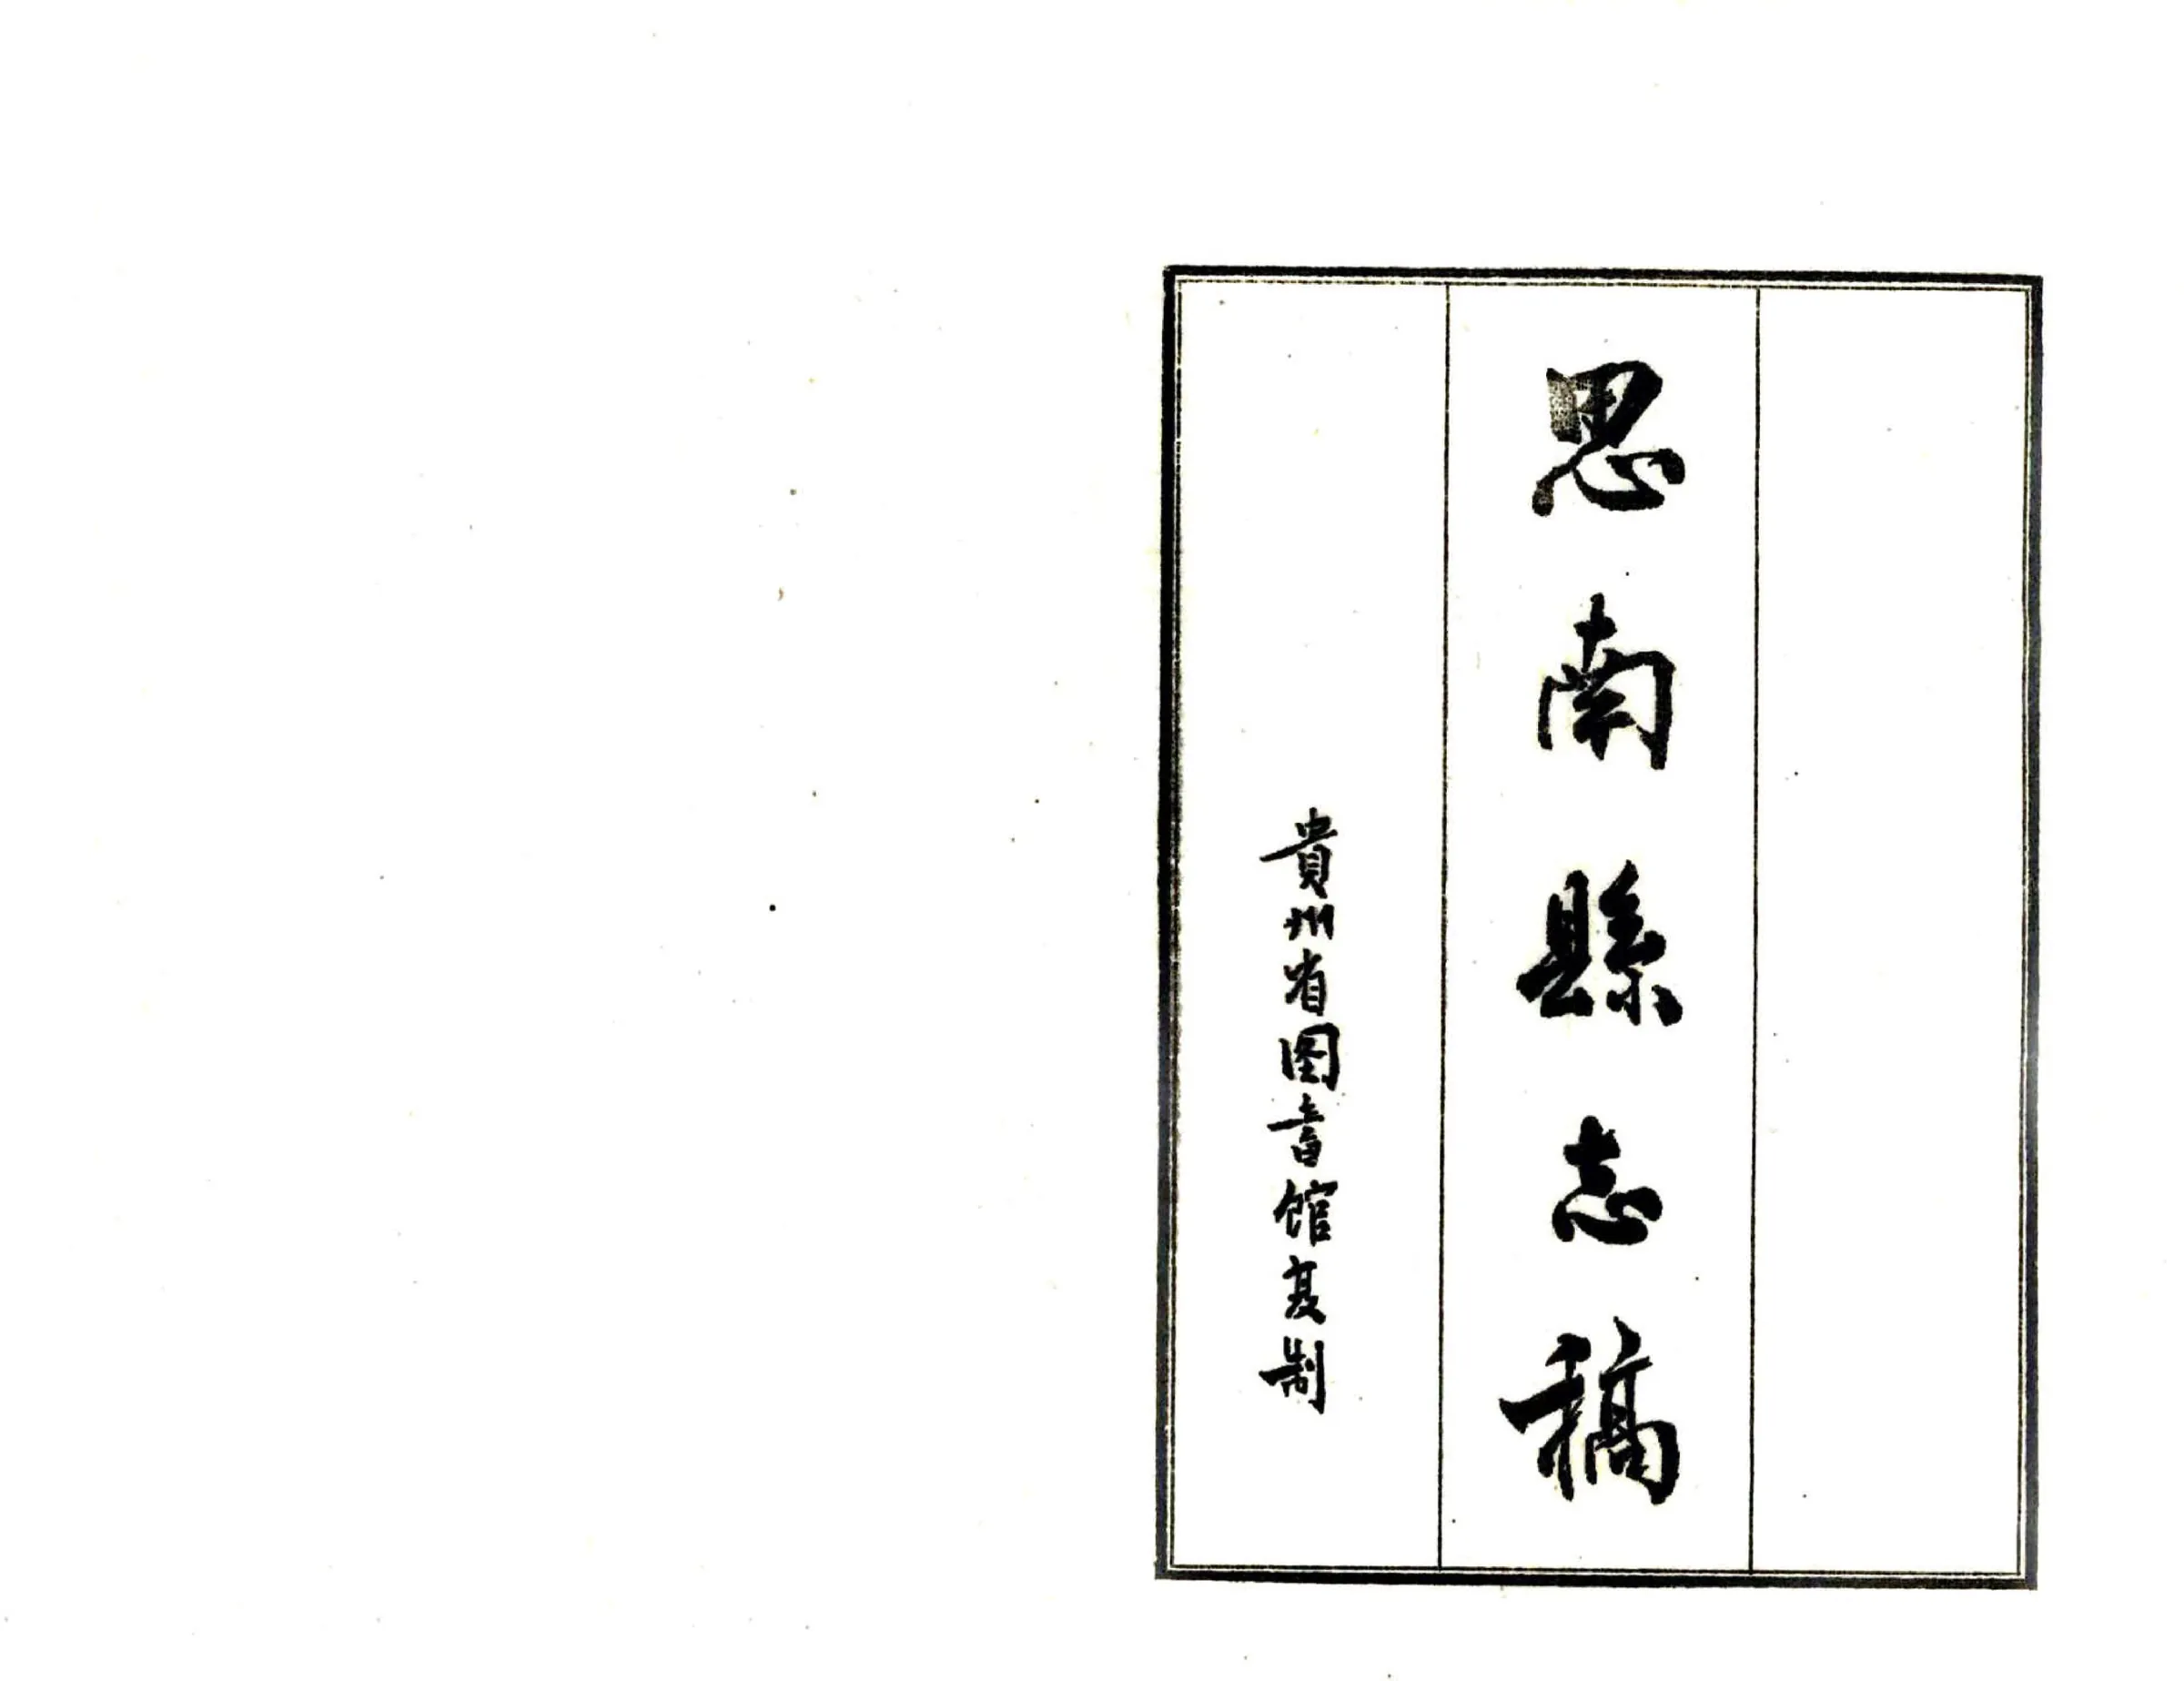 思南縣志稿
貴州省图書馆复制